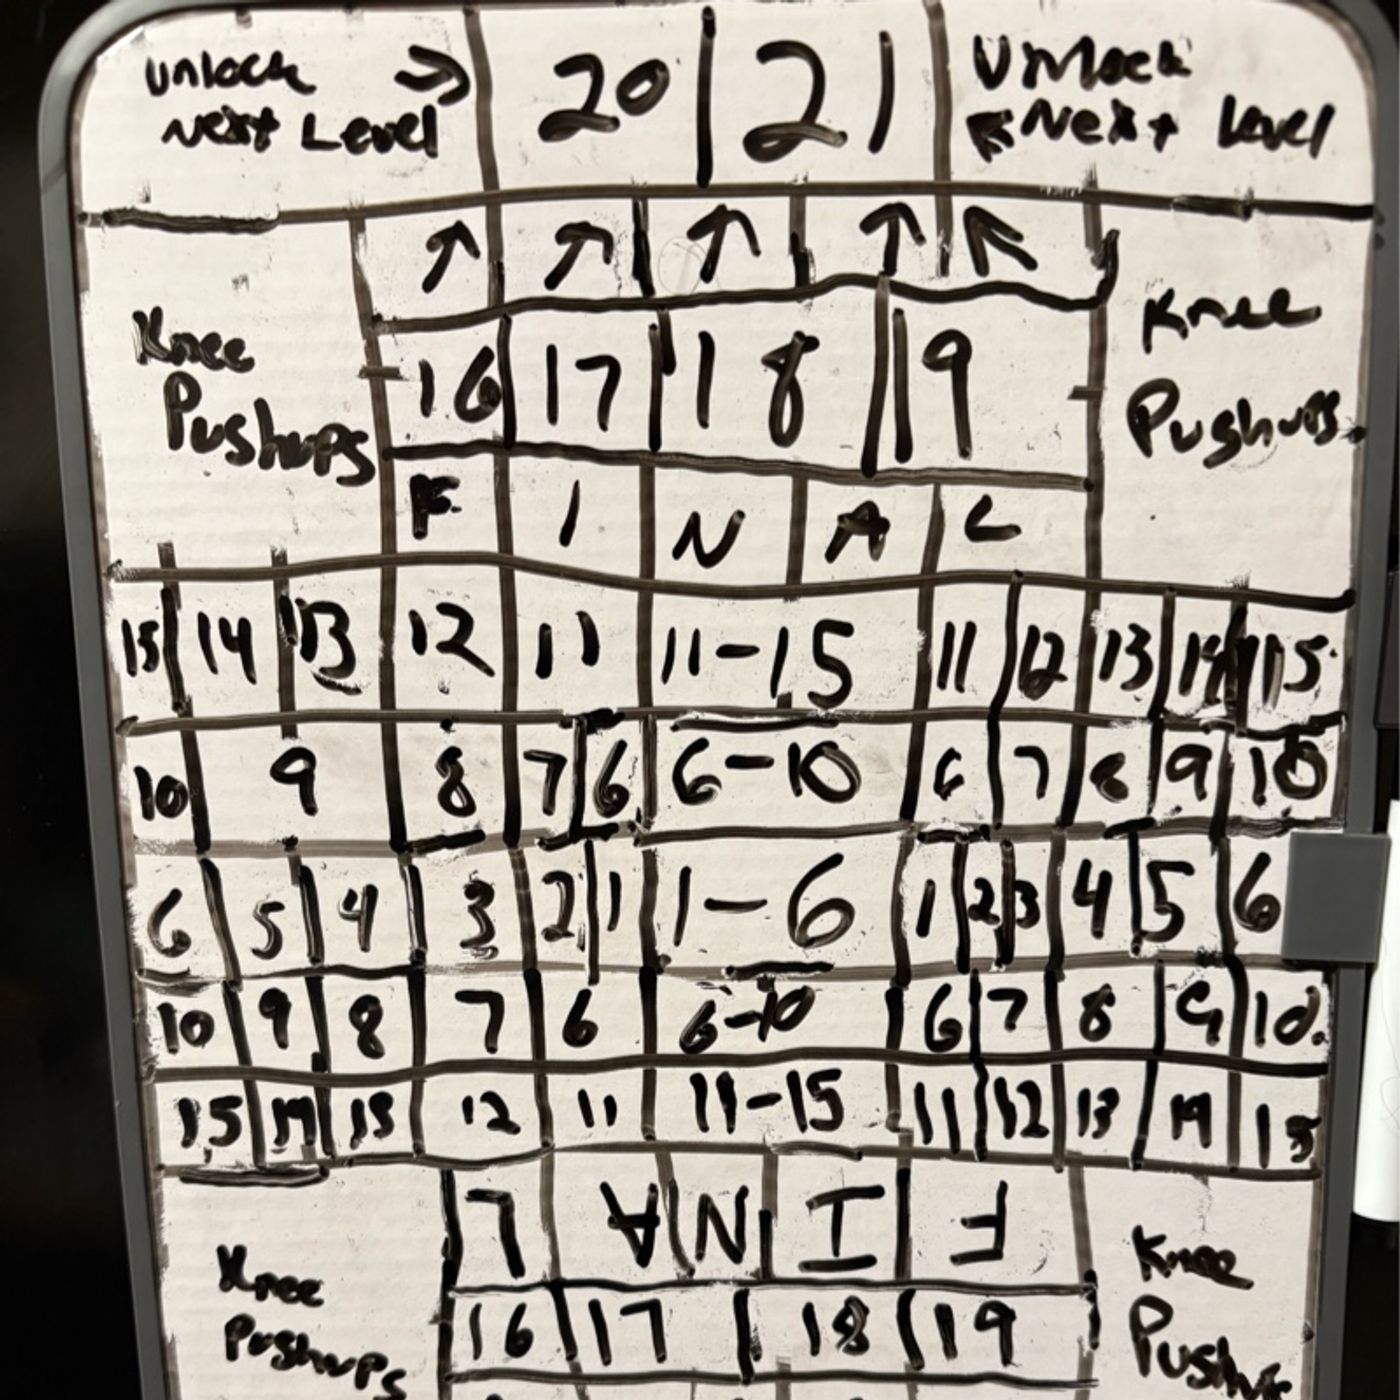 Unlock → 20 21 Unlock
Next Level ↖ Next Level
↗ ↗ ↑ ↑ ↖
Knee 16 17 18 19 Knee
Pushups Pushups
F I N A L
15 14 13 12 11 11-15 11 12 13 14 15
10 9 8 7 6 6-10 6 7 8 9 10
6 5 4 3 2 1 1-6 1 2 3 4 5 6
10 9 8 7 6 6-10 6 7 8 9 10
15 14 13 12 11 11-15 11 12 13 14 15
L A N I F
Knee 16 17 18 19 Knee
Pushups